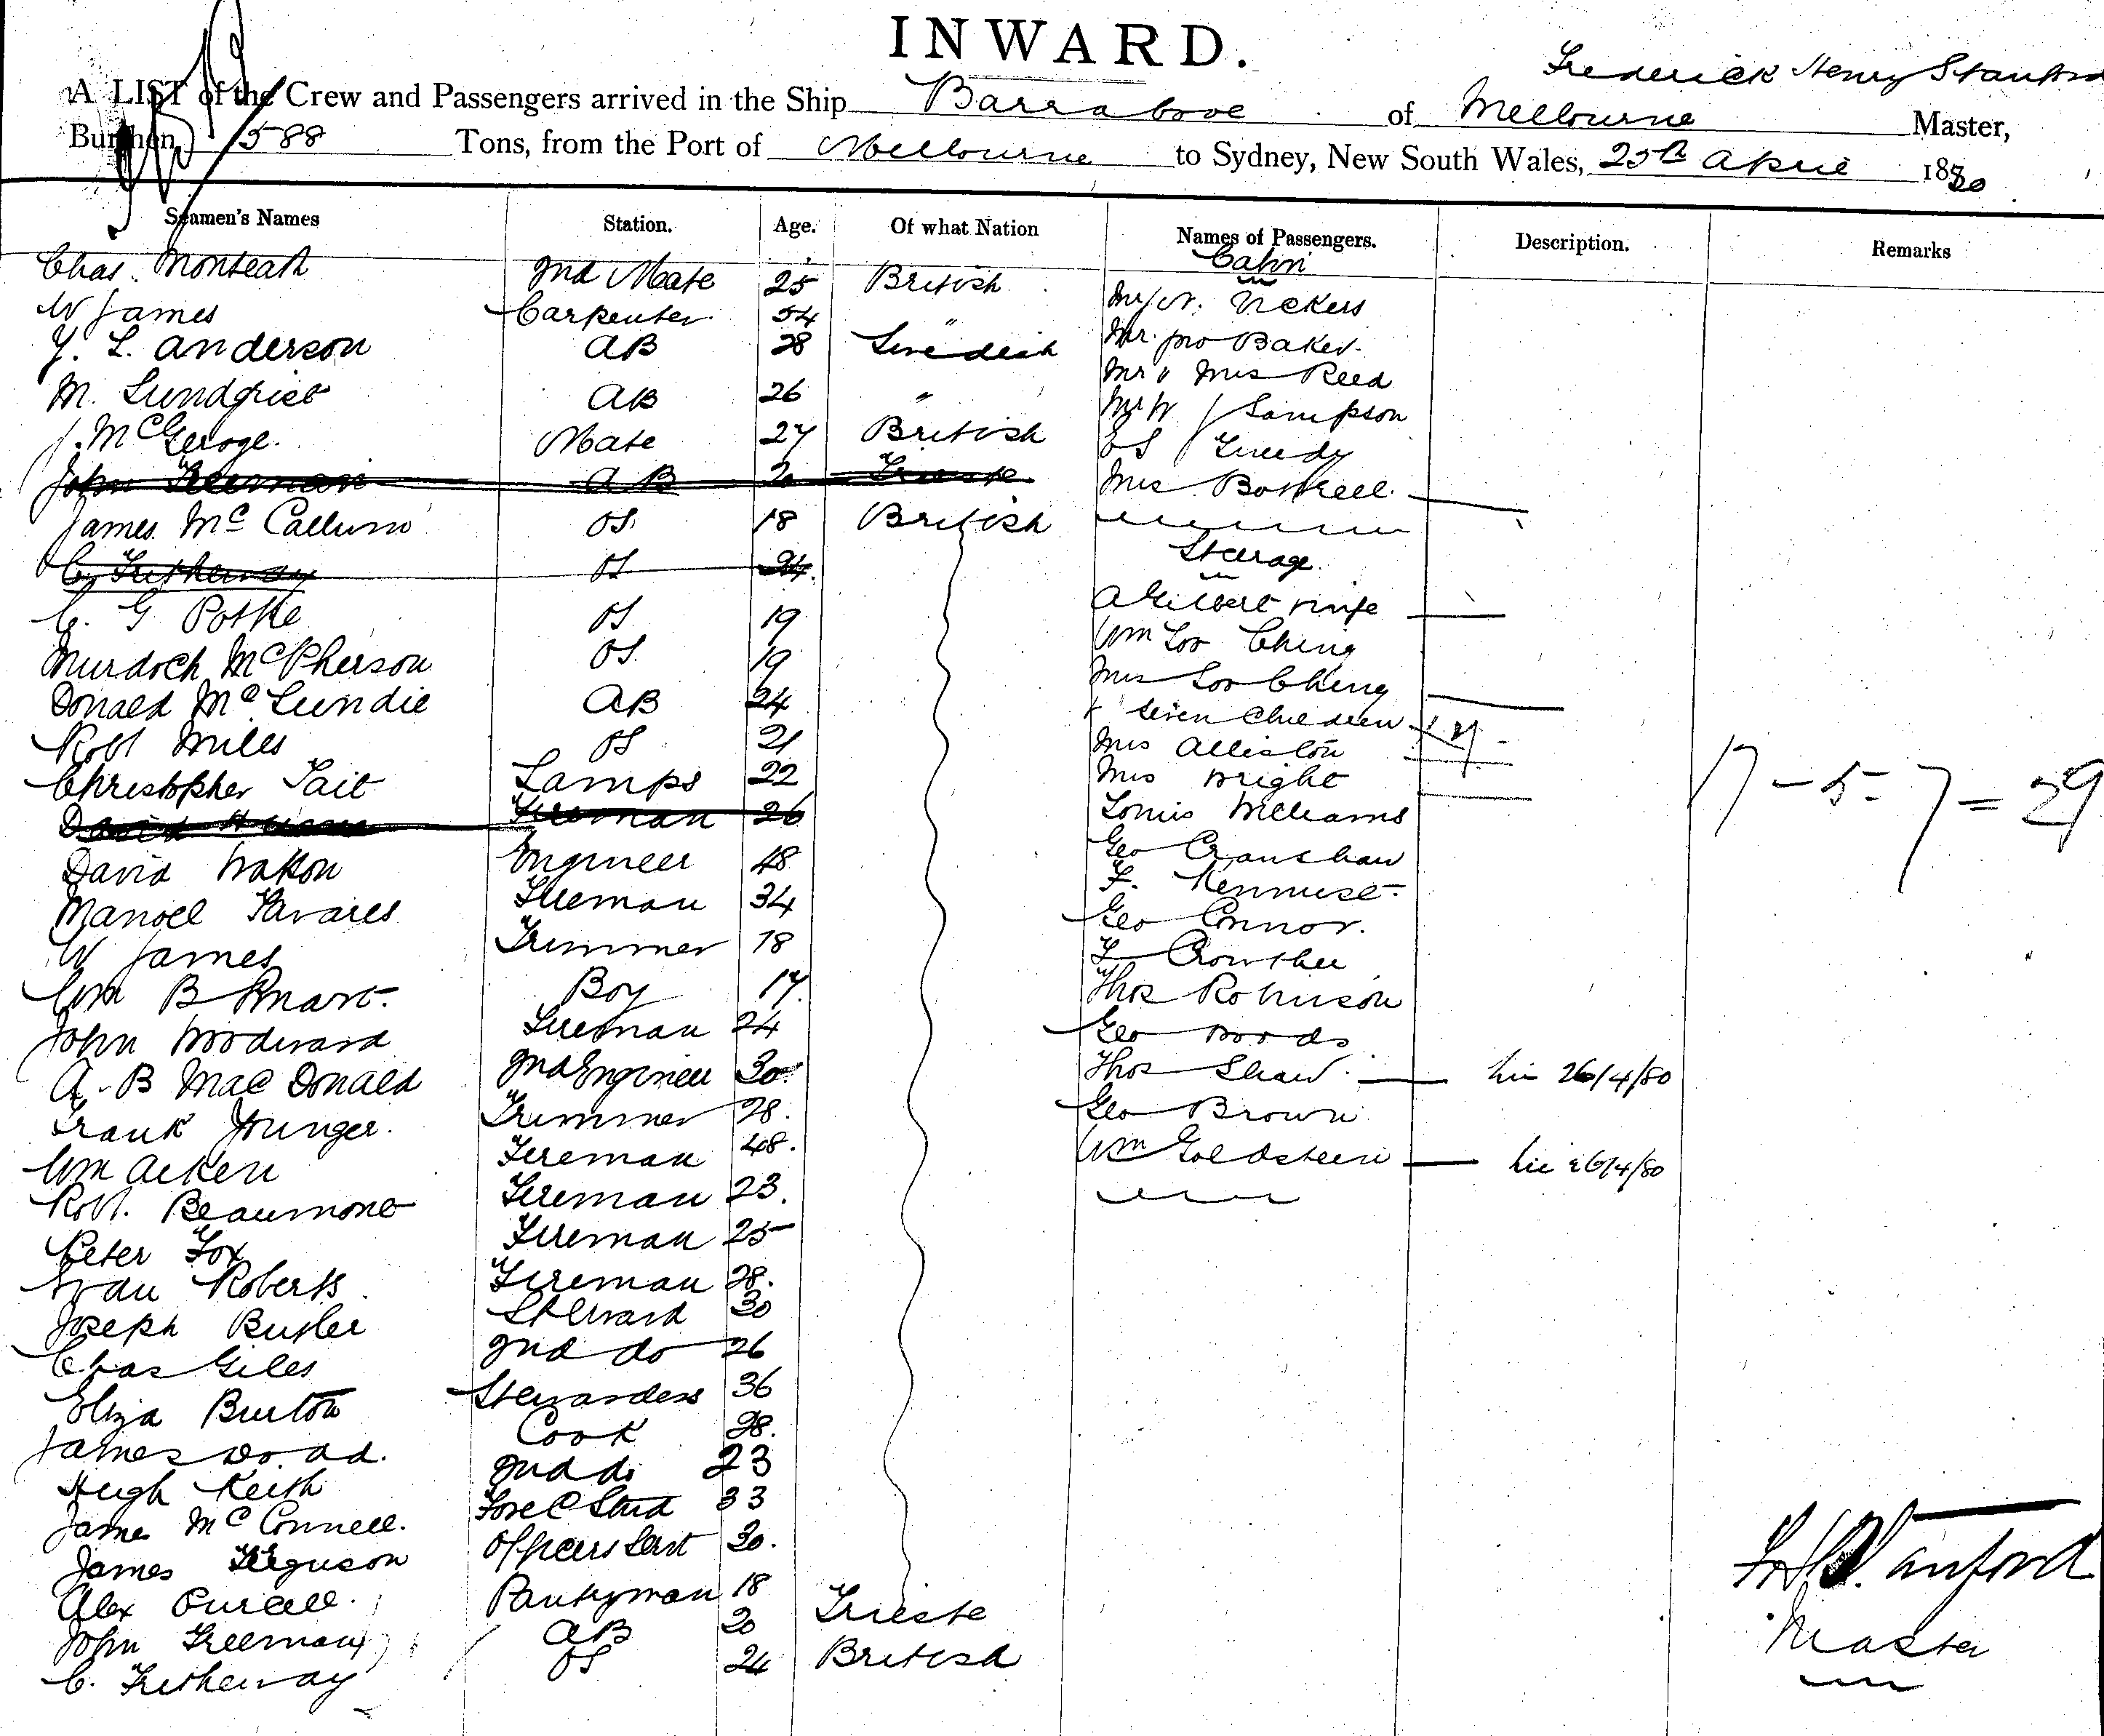 INWARD.
Frederick Henry Stanford
A LIST of the Crew and Passengers arrived in the Ship Barrabool of Melbourne Master,
Burthen 588 Tons, from the Port of Melbourne to Sydney, New South Wales, 25th April 1880
Seamen's Names Station. Age. Of what Nation Names of Passengers. Description. Remarks
Cabin
Chas. Monteath 2nd Mate 25 British Vickers
W James Carpenter 54 " Mr Baker
Y. L. Anderson AB 28 Swedish Mr & Mrs Reed
M. Lundqrist AB 26 " Sampson
J. McGeroge. Mate 27 British
John Freeman AB 20 Trieste Mrs Bottrell.
James McCallum OS. 18 British
C. Tretheway OS 24. Steerage.
C. G Pothe OS 19 A Gilbert & wife
Murdoch McPherson OS. 19 Wm Loo Ching
Donald McLundie AB 24 Mrs Loo Ching
& seven children 7
Robt Miles OS 21 Mrs Alliston
Christopher Tait Lamps 22 Mrs Wright
David Hume Fireman 26 Louis Williams
David Watson Engineer 48 Geo Cranshaw
Manoel Tavares Fireman 34 F.
Geo Connor.
W James Trimmer 18 Crowther
Wm B Smart. Boy 17 Thos Robinson
John Woodward Fireman 24 Geo Woods
A. B MacDonald 2nd Engineer 30 Thos Shaw. 26/4/80
Frank Younger. Trimmer 28. Geo Brown
Wm Aiken Fireman 48. Wm Goldstein 26/4/80
Robt. Beaumont Fireman 23.
Peter Fox Fireman 25
Evan Roberts Fireman 28.
Joseph Butler Steward 30
Chas Giles 2nd do 26
Eliza Burton Stewardess 36
James Wood. Cook 28.
Hugh Keith 2nd do 23
James McConnell. Fore C Stwd 33
James Ferguson Officers Servt 30.
Alex Purcell. Pantryman 18
John Freeman AB 20 Trieste
C. Tretheway OS 24 British
17 - 5 - 7 = 29
F H Stanford
Master